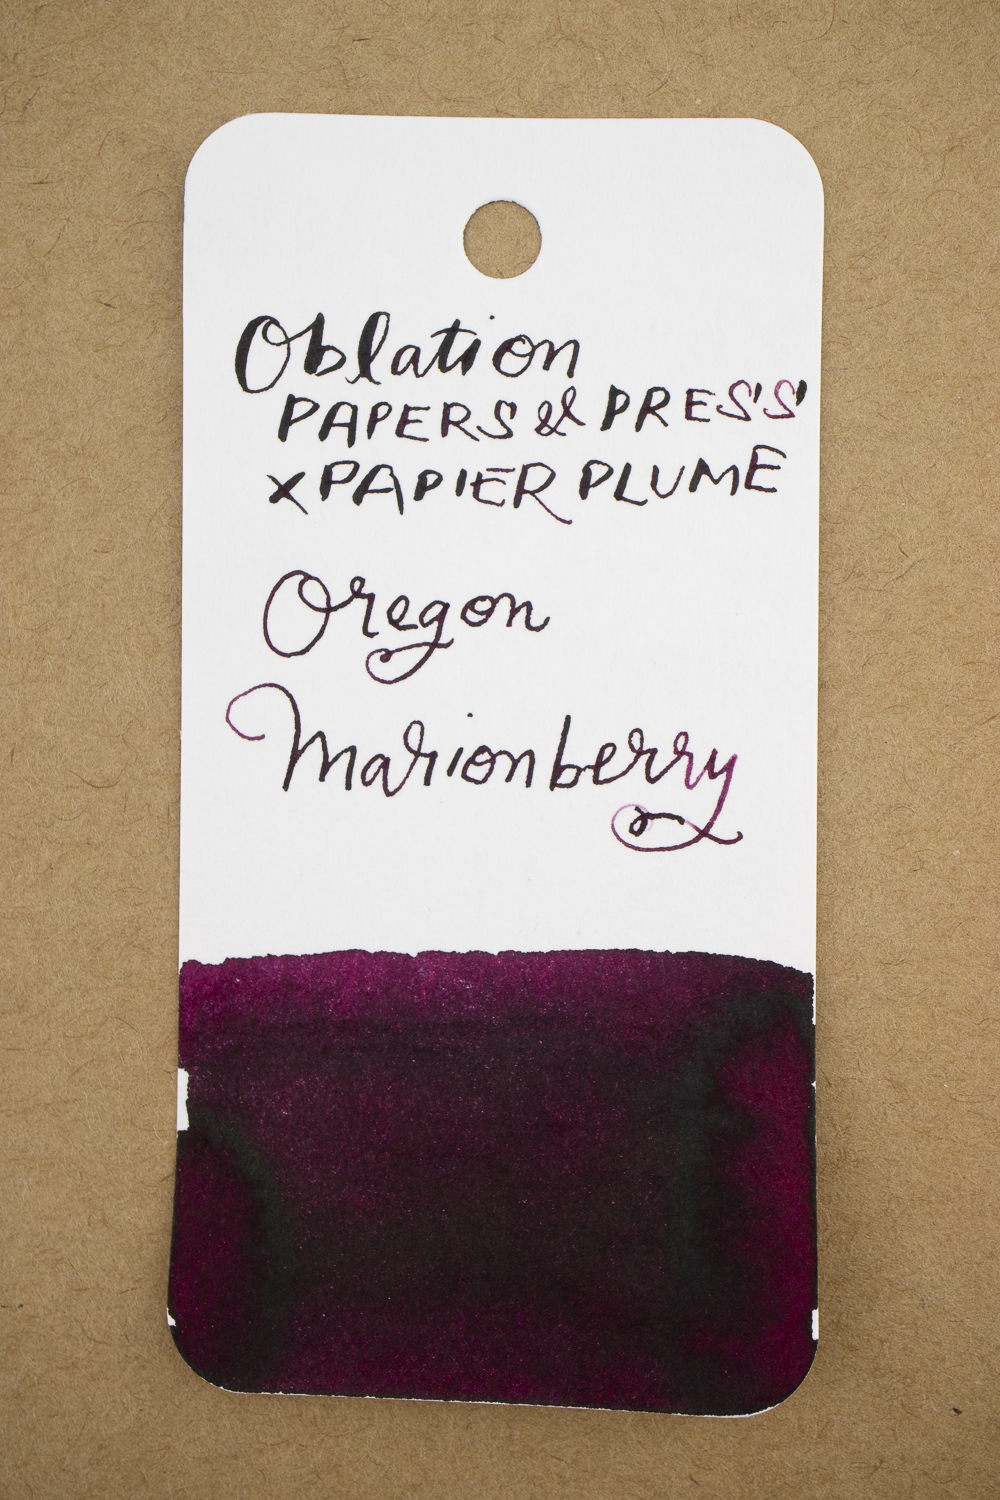 Oblation
PAPERS & PRESS
x PAPIER PLUME
Oregon
Marionberry